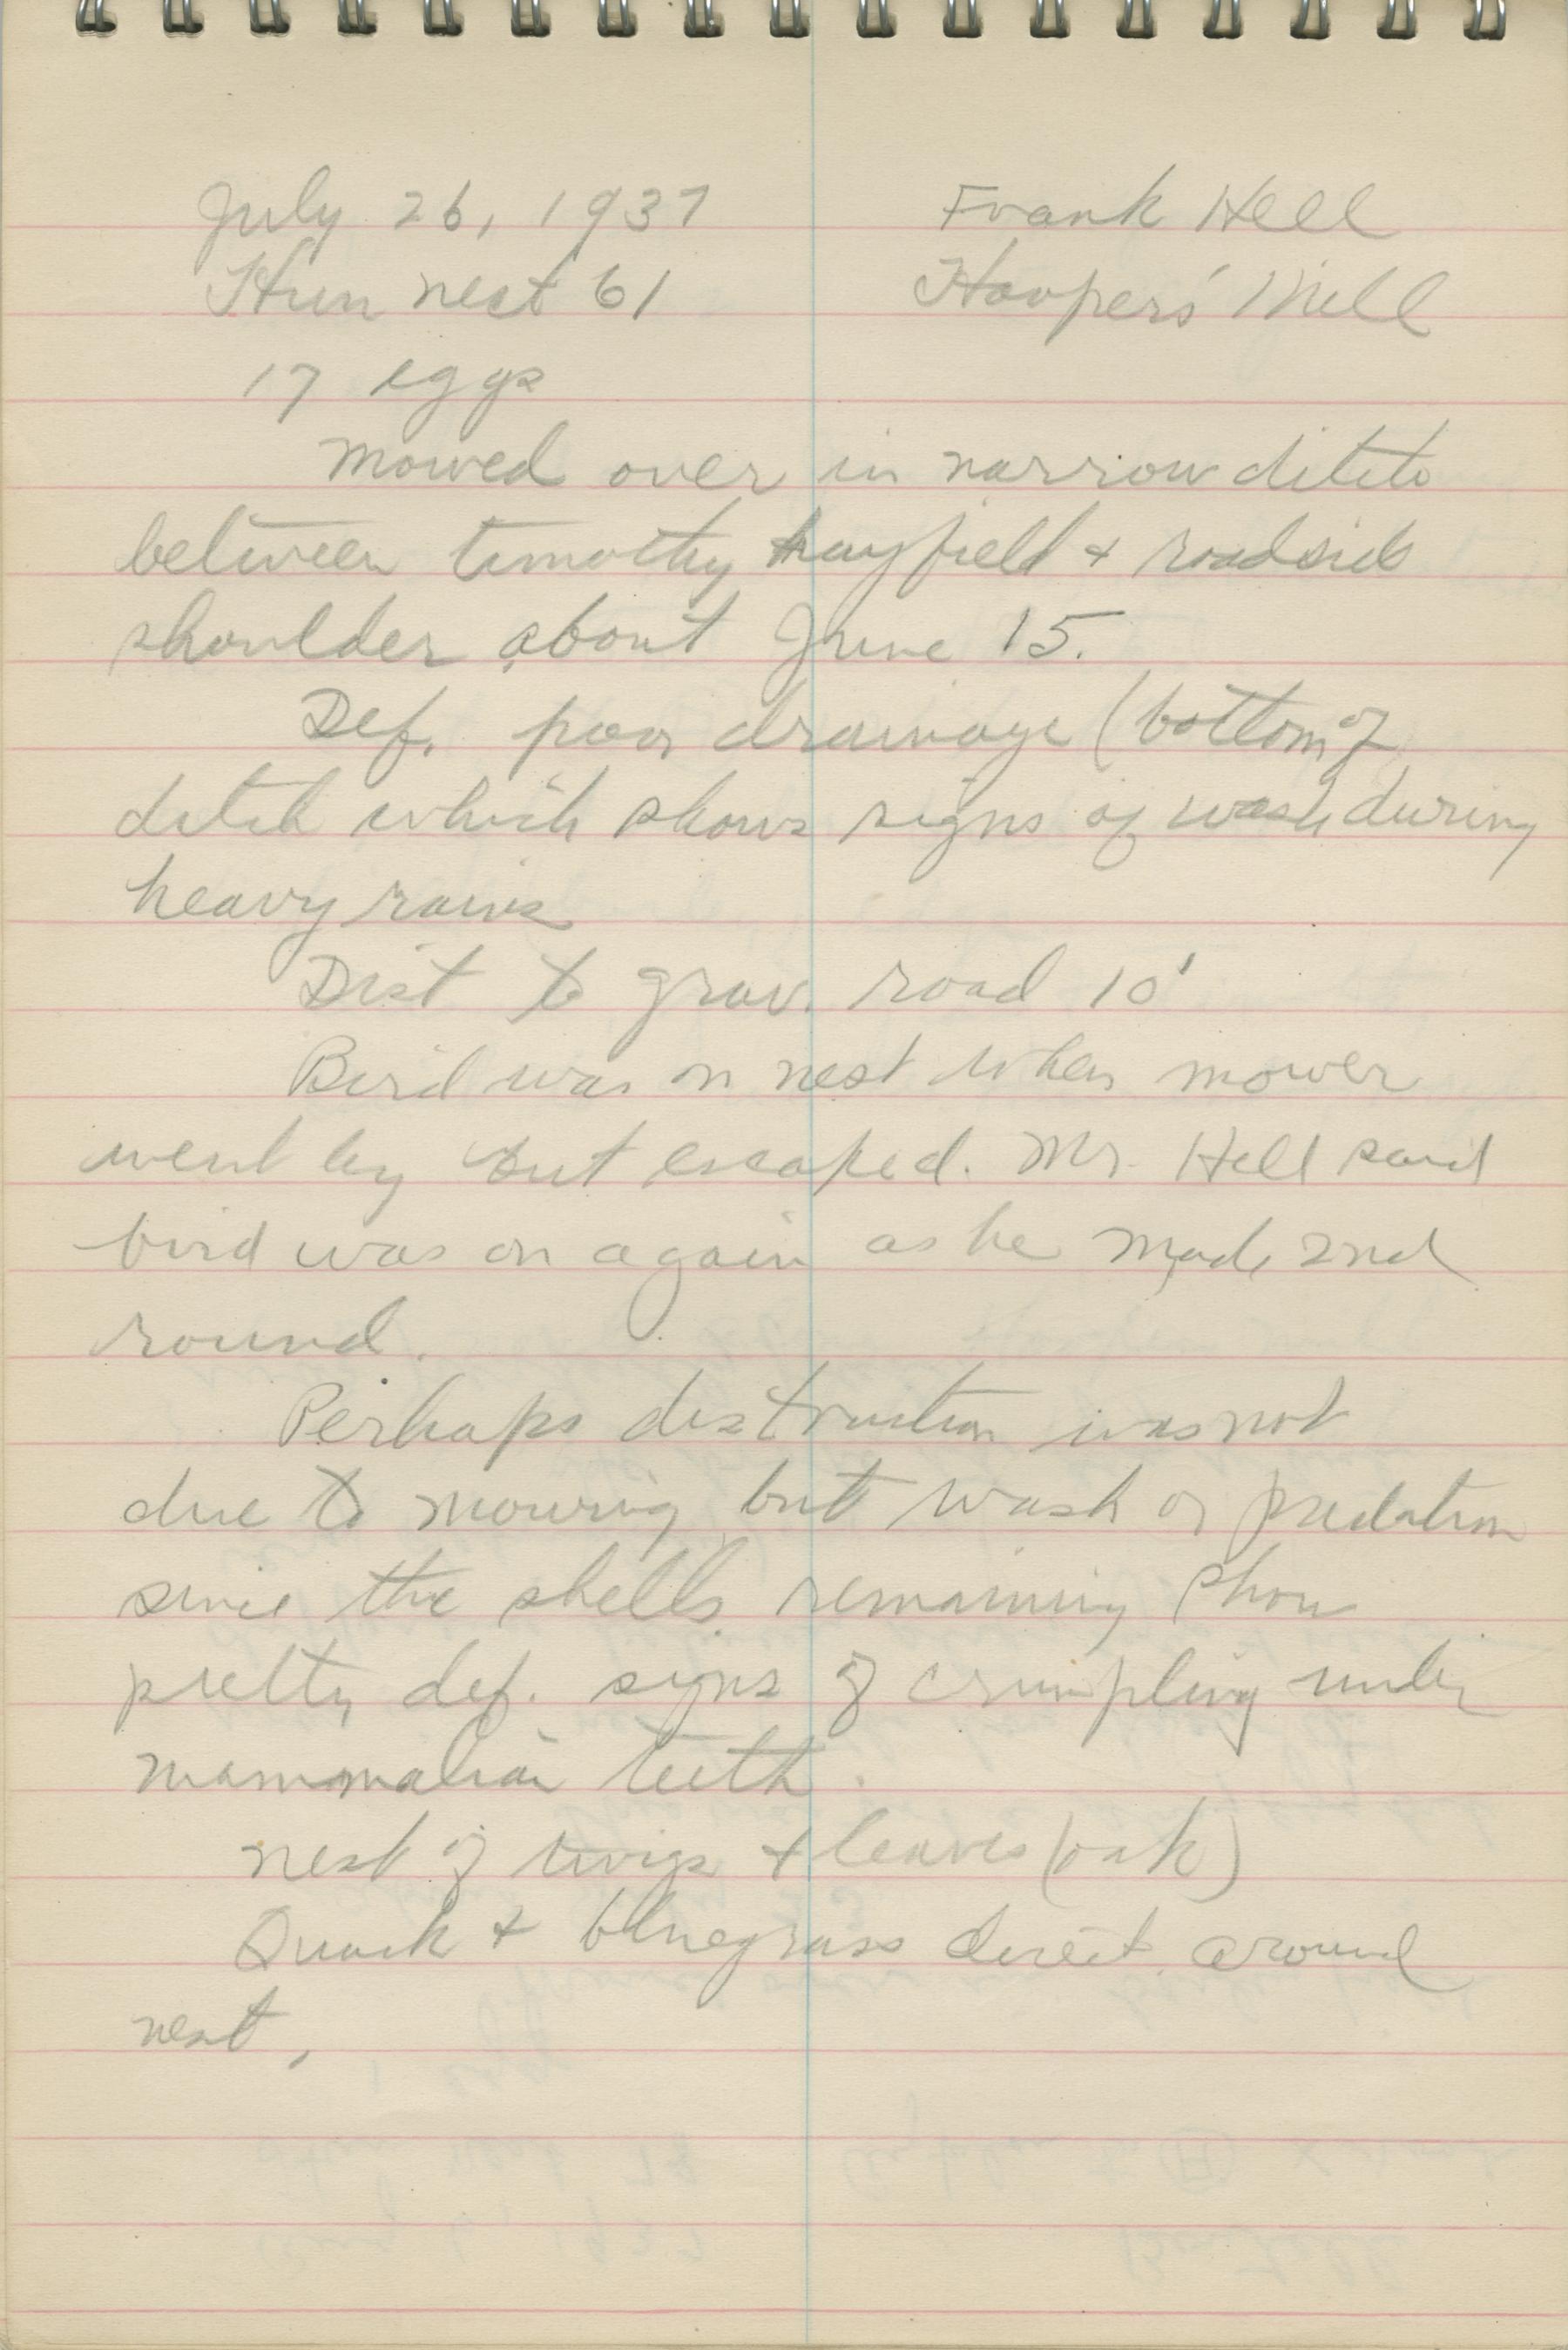 July 26, 1937 Frank Hell
Hun nest 61 Hoopers' Mill
17 eggs
Mowed over in narrow ditch
between timothy hayfield + roadside
shoulder about June 15.
Def. poor drainage (bottom of
ditch which shows signs of wash during
heavy rains
Dist to grav. road 10'
Bird was on nest when mower
went by but escaped. Mr. Hell said
bird was on again as he made 2nd
round.
Perhaps destruction was not
due to mowing but wash or predation
since the shells remaining show
pretty def. signs of crumpling under
mammalian teeth.
nest of twigs + leaves (oak)
Quack + bluegrass direct. around
nest,